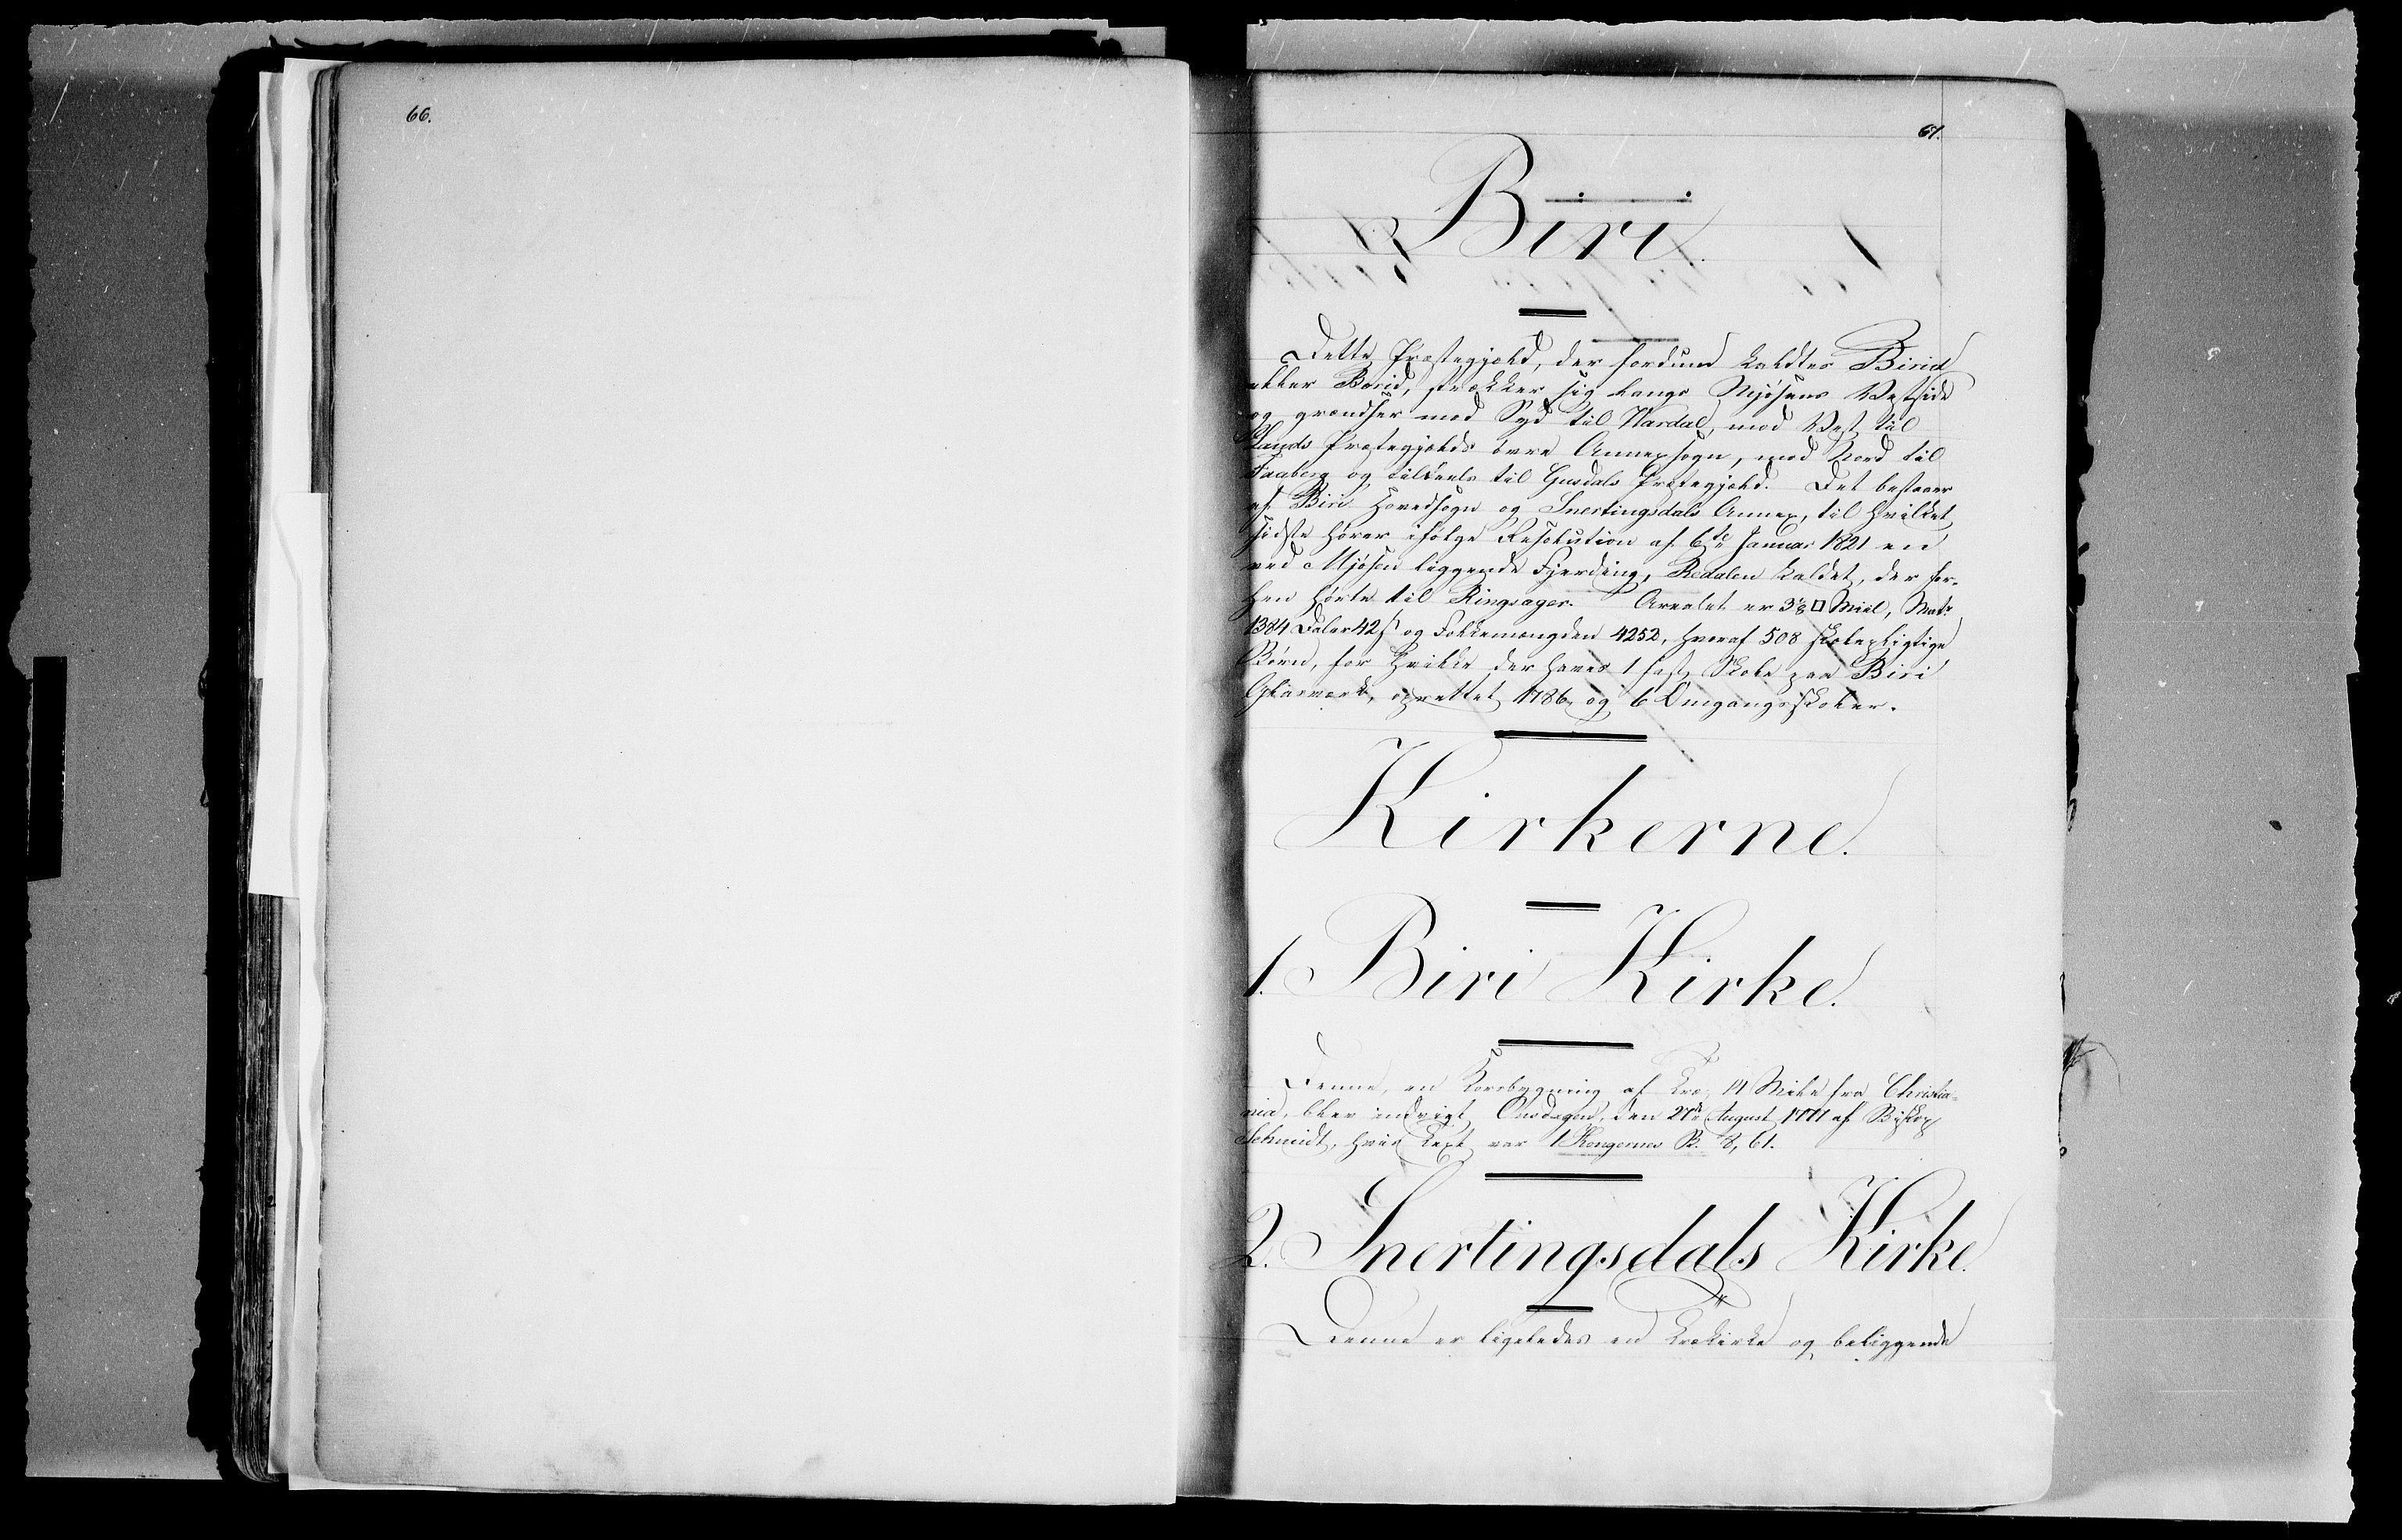 66.
67.
Biri.
Dette Præstegjæld, der fordum kaldtes Birid
eller Borid, strækker sig langs Mjøsens Vestside
og grændser mod Syd til Vardal, mod Vest til
Lands Præstegjælds øvre Annexsogn, mod Nord til
Faaberg og tildeels til Gusdals Præstegjæld. Det bestaaer
af Biri Hovedsogn og Snertingsdals Annex, til hvilket
sidste hører ifølge Resolution af 6te Januar 1821 en
ved Mjøsen liggende Fjerding, Redalen kaldet, der for-
hen hørte til Ringsager. Arealet er 3⅛ □ Miil, Matr
1384 Daler 42 s og Folkemængden 4252, hvoraf 508 skolepligtige
Børn, for hvilke der haves 1 fast Skole paa Biri
Glasværk, oprettet 1786, og 6 Omgangsskoler.
Kirkerne.
1. Biri Kirke.
Denne, en Korsbygning af Træ, 14 Mile fra Christia-
nia, blev indviet Onsdagen den 27de August 1777 af Biskop
Schmidt, hvis Text var 1 Kongernes B. 8, 61.
2. Snertingsdals Kirke.
Denne er ligeledes en Trækirke og beliggende